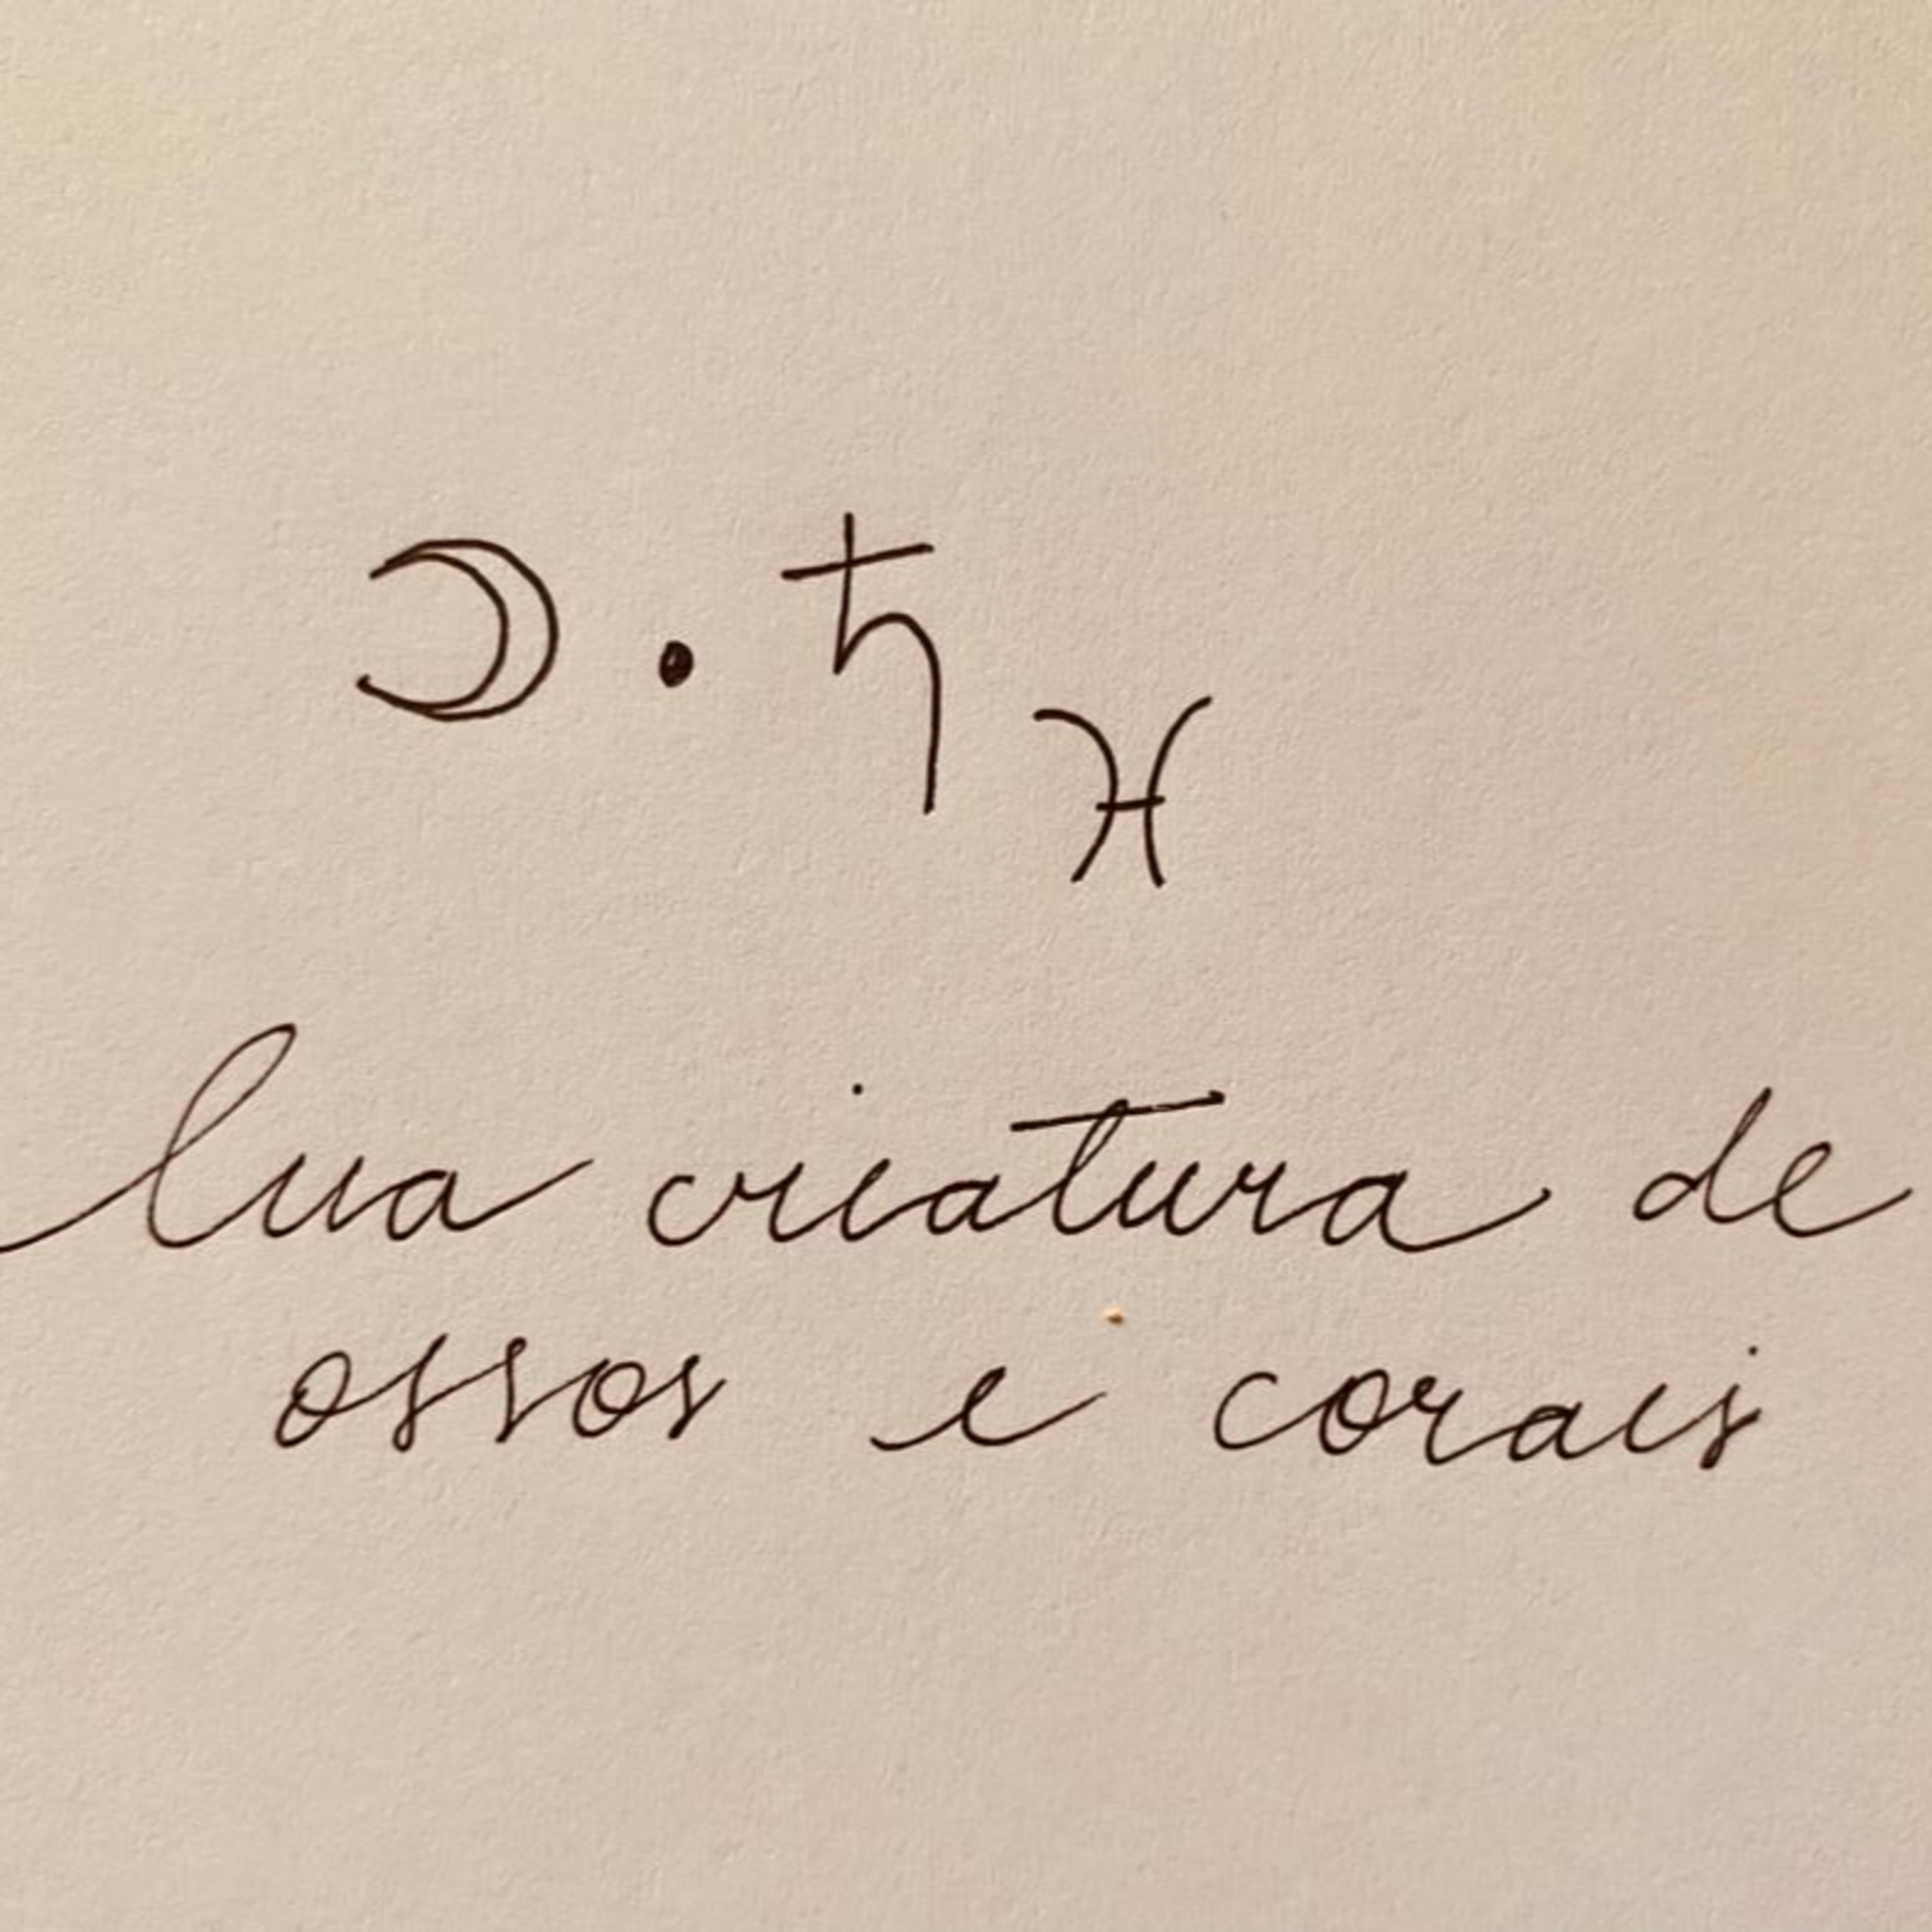 ☽ • ♄ ♓
lua criatura de
ossos e corais